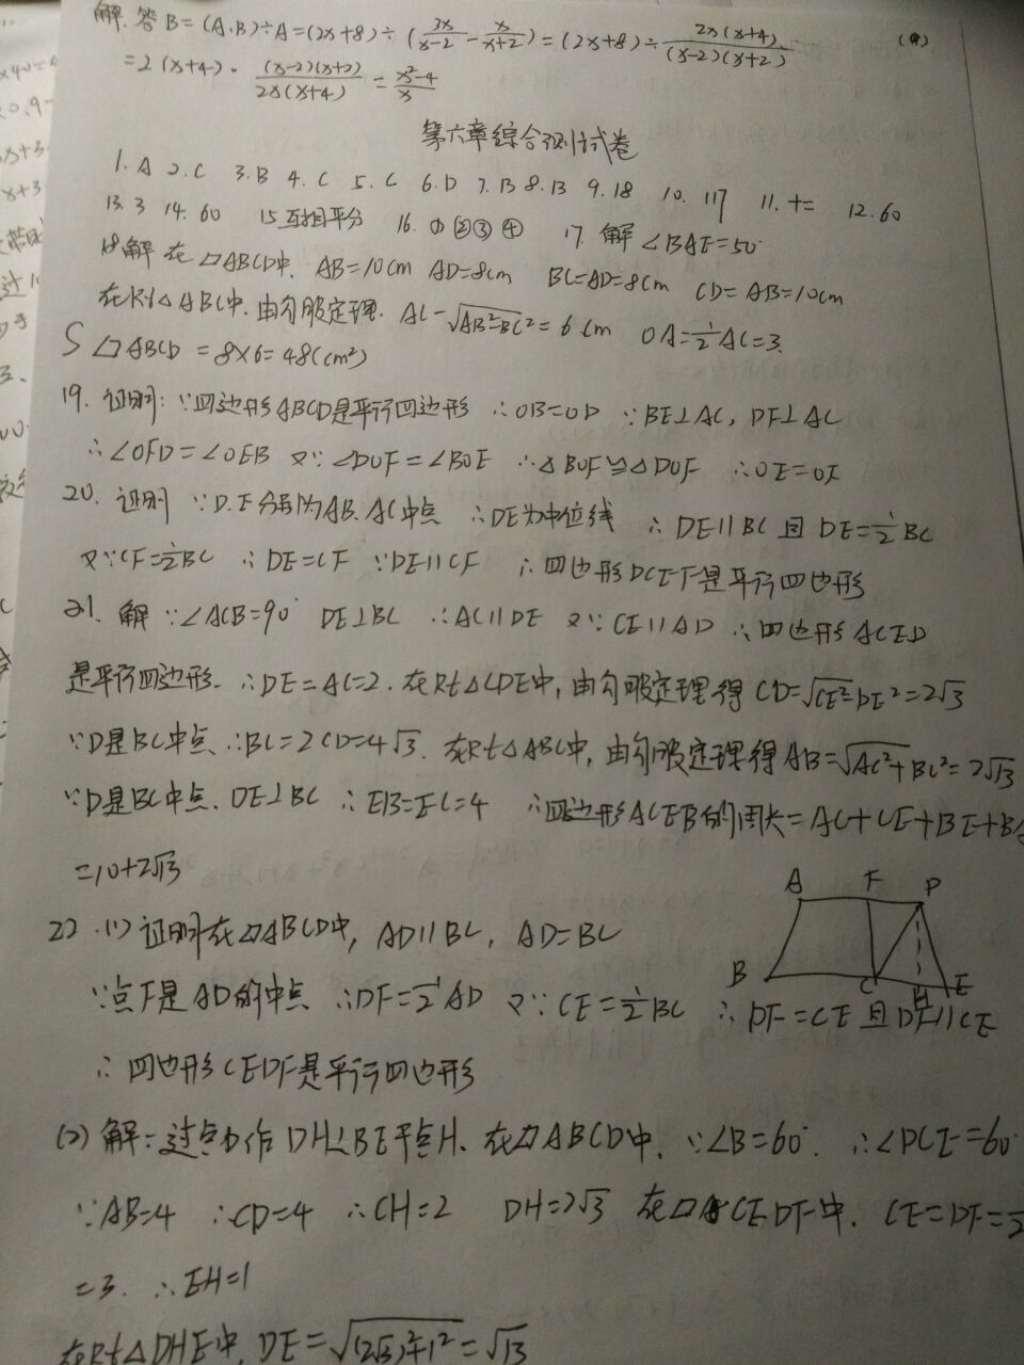 解. 答 B=(A·B)÷A=(2x+8)÷(3x/(x-2) - x/(x+2))=(2x+8)÷ 2x(x+4)/((x-2)(x+2))
=2(x+4)· (x-2)(x+2)/(2x(x+4)) = (x²-4)/x
第六章综合测试卷
1. A 2. C 3. B 4. C 5. C 6. D 7. B 8. B 9. 18 10. 117 11. 十二 12. 60
13. 3 14. 60 15 互相平分 16. ① ② ③ ④ 17. 解 ∠BAE=50°
18 解 在▱ABCD中. AB=10cm AD=8cm BC=AD=8cm CD=AB=10cm
在Rt△ABC中. 由勾股定理. AC=√(AB²-BC²)=6cm OA=½AC=3.
S▱ABCD=8×6=48(cm²)
19. 证明: ∵四边形ABCD是平行四边形 ∴OB=OD ∵BE⊥AC, DF⊥AC
∴∠OFD=∠OEB 又∵∠DOF=∠BOE ∴△BOF≌△DOF ∴OE=OF
20. 证明 ∵D.E分别为AB.AC中点 ∴DE为中位线 ∴DE∥BC且DE=½BC
又∵CF=½BC ∴DE=CF ∵DE∥CF ∴四边形DCEF是平行四边形
21. 解 ∵∠ACB=90° DE⊥BC ∴AC∥DE 又∵CE∥AD ∴四边形ACED
是平行四边形. ∴DE=AC=2. 在Rt△CDE中, 由勾股定理得 CD=√(CE²-DE²)=2√3
∵D是BC中点 ∴BC=2CD=4√3. 在Rt△ABC中, 由勾股定理得AB=√(AC²+BC²)=2√13
∵D是BC中点. DE⊥BC ∴EB=EC=4 ∴四边形ACEB的周长=AC+CE+BE+BA
=10+2√13
A F D
22 .(1) 证明 在▱ABCD中, AD∥BC, AD=BC
B C H E
∵点F是AD的中点 ∴DF=½AD 又∵CE=½BC ∴DF=CE且DF∥CE
∴四边形CEDF是平行四边形
(2) 解: 过点D作DH⊥BE于点H. 在▱ABCD中. ∵∠B=60°. ∴∠DCE=60°
∵AB=4 ∴CD=4 ∴CH=2 DH=2√3 在▱CEDF中. CE=DF=
=3. ∴EH=1
在Rt△DHE中. DE=√((2√3)²+1²)=√13